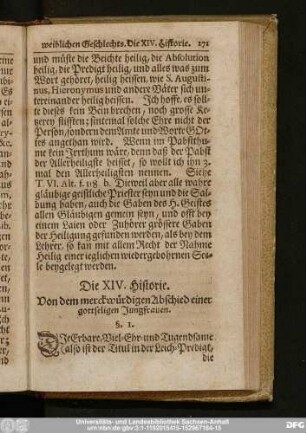 weiblichen Geschlechts. Die XIV. Historie. 171
und müste die Beichte heilig, die Absolution
heilig, die Predigt heilig, und alles was zum
Wort gehöret, heilig heissen, wie S. Augusti-
nus, Hieronymus und andere Väter sich un-
tereinander heilig heissen. Ich hoffe, es soll-
te dieses kein Bein brechen, noch grosse Ke-
tzerey stifften; sintemal solche Ehre nicht der
Person, sondern dem Amte und Worte GOt-
tes angethan wird. Wenn im Pabstthu-
me kein Irrthum wäre, denn daß der Pabst
der Allerheiligste heisset, so wollt ich ihn 3.
mal den Allerheiligsten nennen. Siehe
T. VI. Alt. f. 118 b. Dieweil aber alle wahre
gläubige geistliche Priester seyn und die Sal-
bung haben, auch die Gaben des H. Geistes
allen Gläubigen gemein seyn, und offt bey
einem Laien oder Zuhörer grössere Gaben
der Heiligung gefunden werden, als bey dem
Lehrer, so kan mit allem Recht der Nahme
Heilig einer ieglichen wiedergebohrnen See-
le beygelegt werden.
Die XIV. Historie.
Von dem merckwürdigen Abschied einer
gottseligen Jungfrauen.
§. 1.
DJe Erbare, Viel-Ehr- und Tugendsame
also ist der Titul in der Leich-Predigt,
die
Universitäts- und Landesbibliothek Sachsen-Anhalt
urn:nbn:de:gbv:3:1-1192015415-152967184-15
DFG